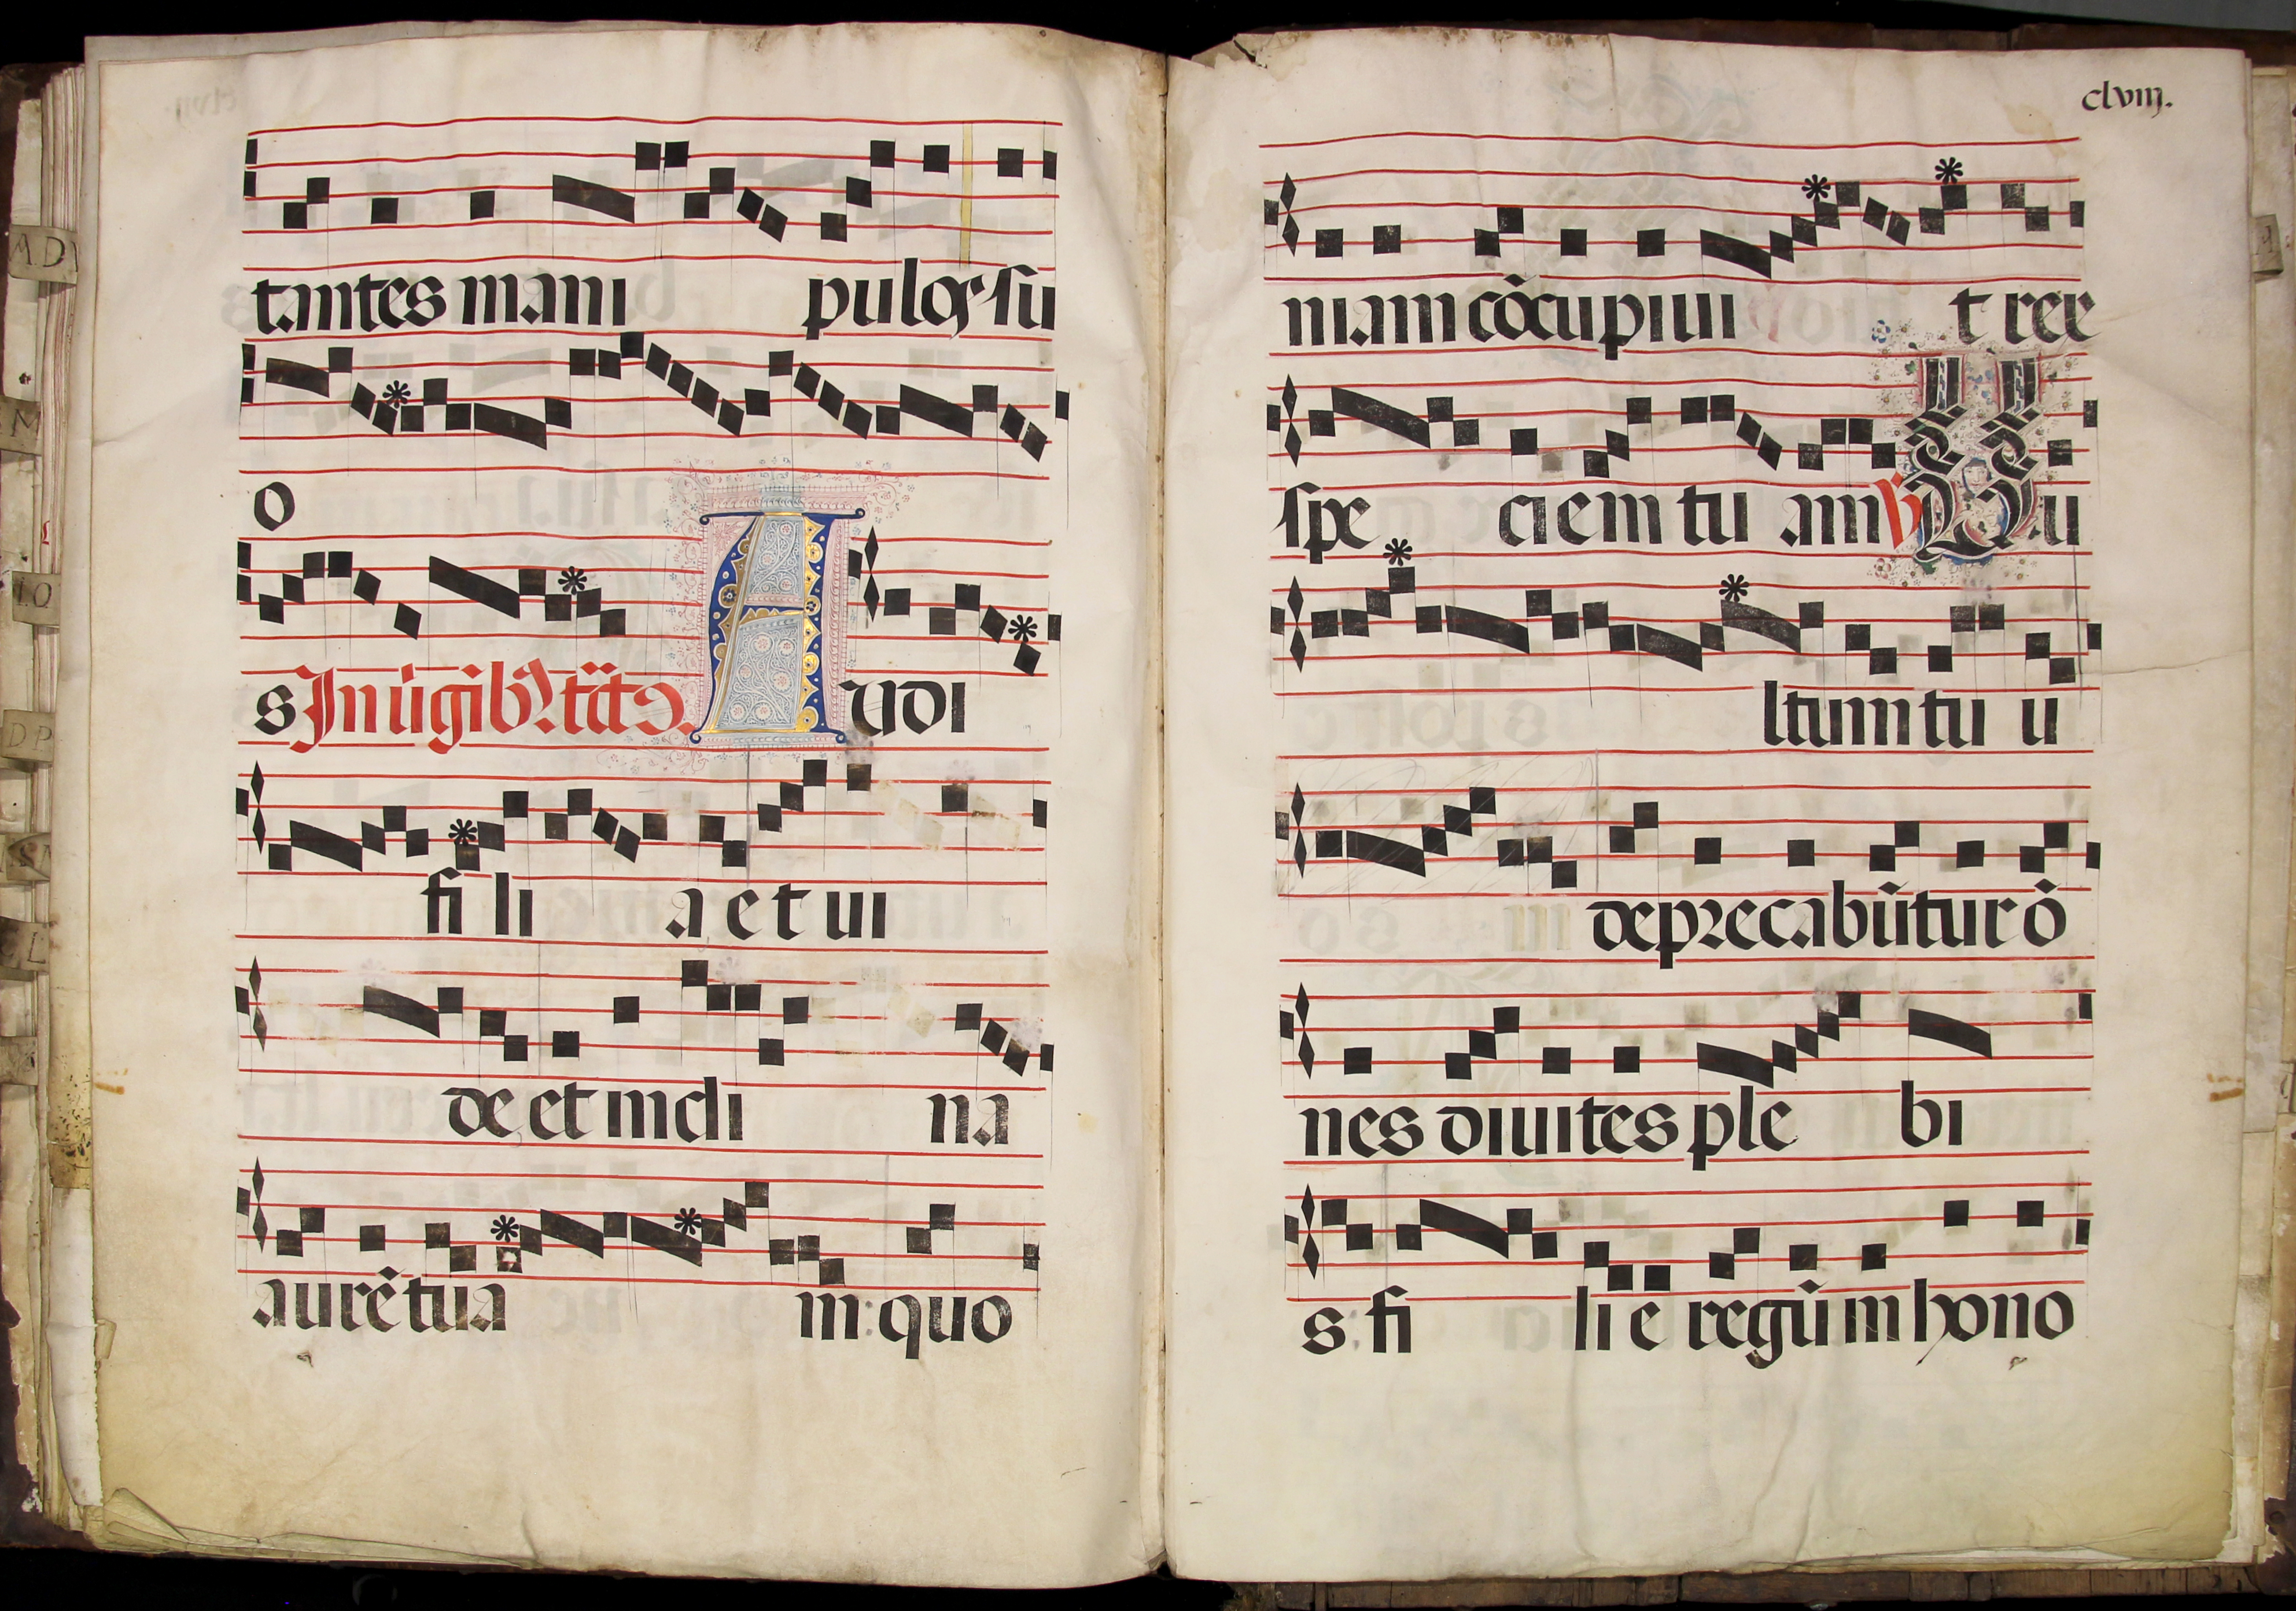 tantes mani pulos su
o
s In ũgibꝰ tc̃tꝰ. Audi
fi li a et ui
de et incli na
aurẽ tua m: quo
clviij.
niam cõcupiui t rex
spe ciem tu am ℣ Uu
ltum tu u
m deprecabũtur õ
nes diuites ple bi
s. fi li e regũ in hono
AD
M
IO
DP